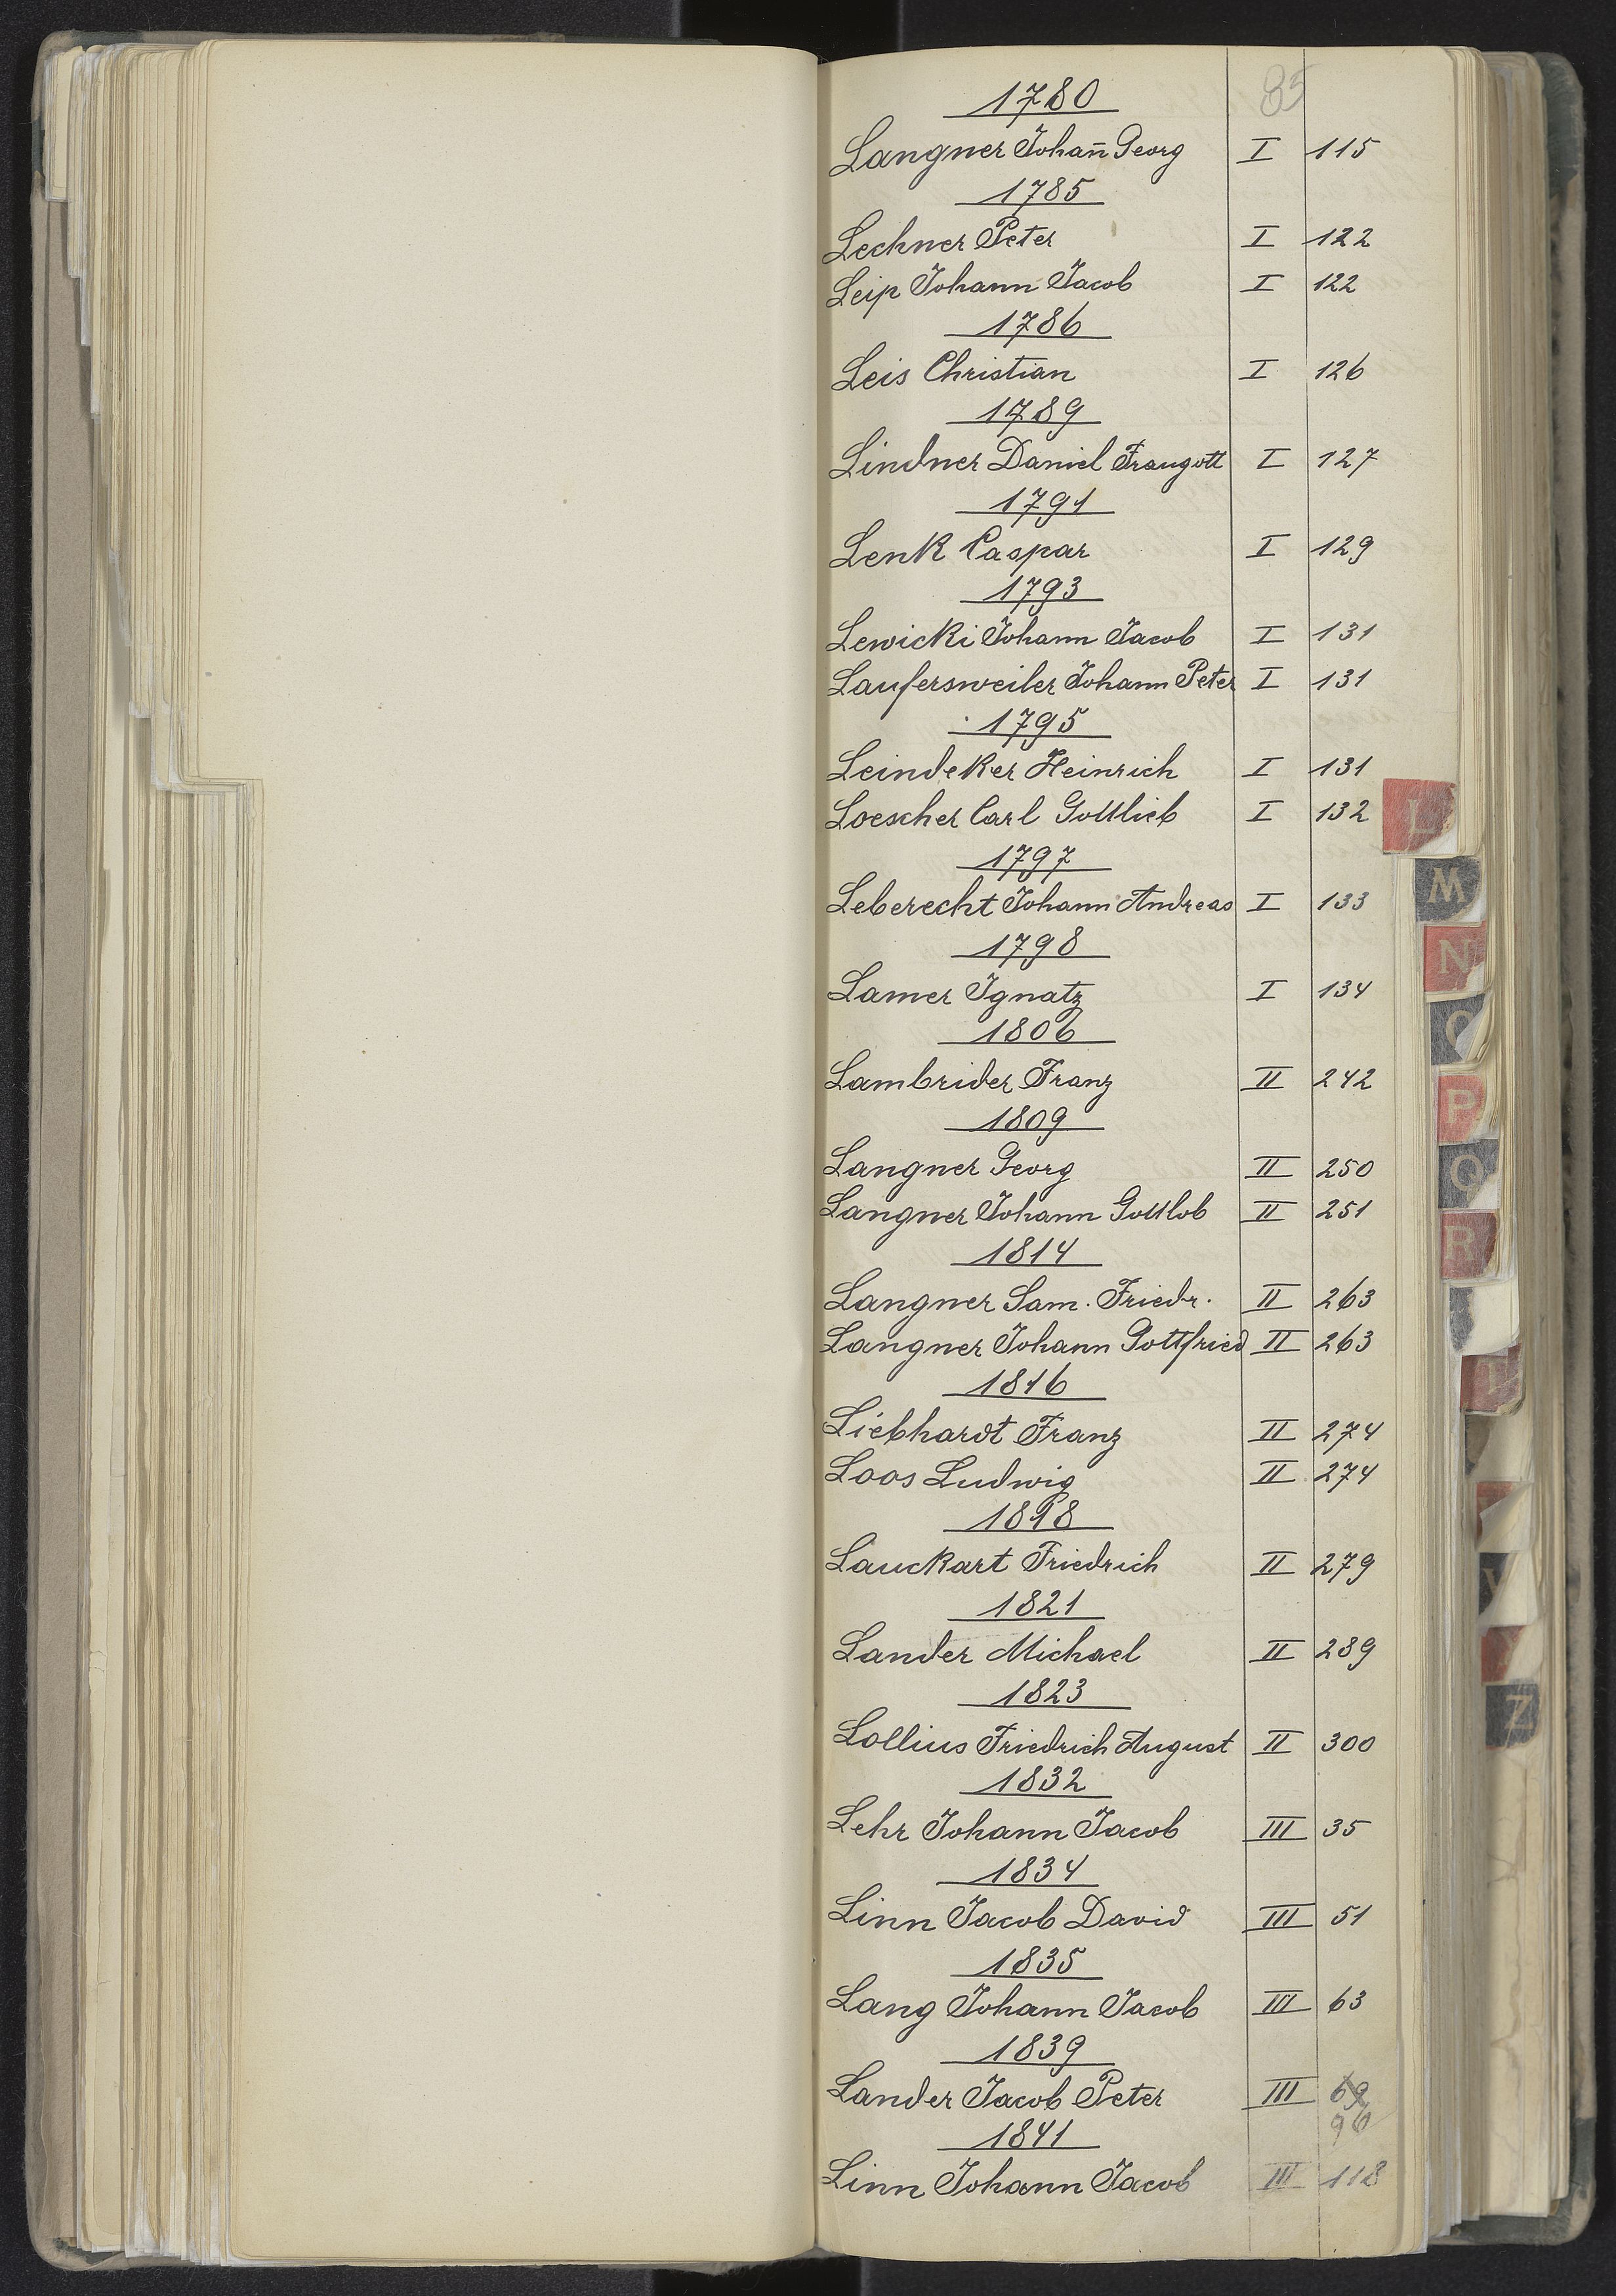 85
1780
Langner Johañ Georg I 115
1785
Lechner Peter I 122
Leip Johann Jacob I 122
1786
Leis Christian I 126
1789
Lindner Daniel Traugott I 127
1791
Lenk Caspar I 129
1793
Lewicki Johann Jacob I 131
Laufersweiler Johann Peter I 131
1795
Leindeker Heinrich I 131
Loescher Carl Gottlieb I 132
1797
Leberecht Johann Andreas I 133
1798
Lamer Ignatz I 134
1806
Lambrider Franz II 242
1809
Langner Georg II 250
Langner Johann Gottlob II 251
1814
Langner Sam. Friedr. II 263
Langner Johann Gottfried II 263
1816
Liebhardt Franz II 274
Loos Ludwig II 274
1818
Lauckart Friedrich II 279
1821
Lander Michael II 289
1823
Lollius Friedrich August II 300
1832
Lehr Johann Jacob III 35
1834
Linn Jacob David III 51
1835
Lang Johann Jacob III 63
1839
Lander Jacob Peter III 69
96
1841
Linn Johann Jacob III 118
L
M
N
O
P
Q
R
Z